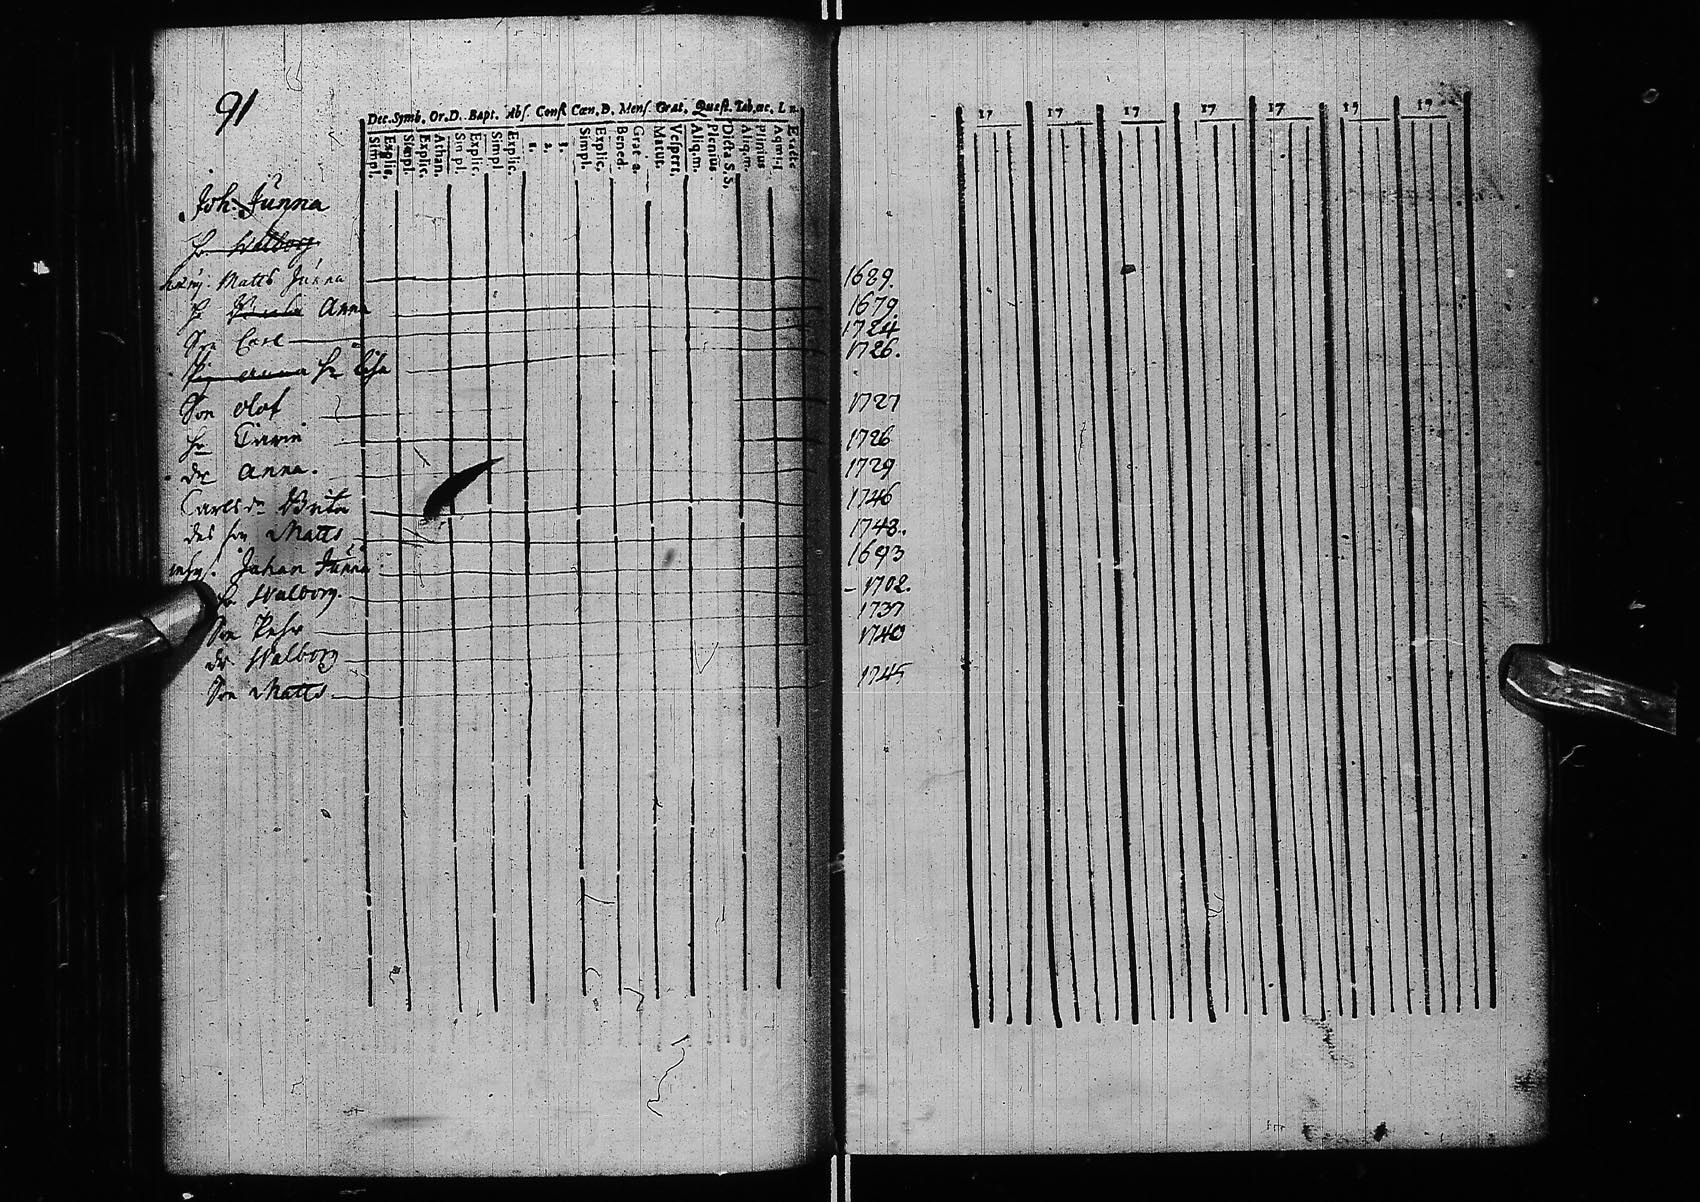 91
Dec. Symb. Or. D. Bapt. Abs. Conf. Cœn. D. Mens. Grat. Quæst. Tab. œc. L n.
Simpl. Explic. Simpl. Explic. Athan. Simpl. Explic. Simpl Explic. 1. 2. 3. Simpl. Explic. Bened. Grat a. Matut. Vespert. Aliq.m. Plenius Dicta S.S. Aliq.m. Plinius Exacte
17 17 17 17 17 17 17
Joh. Junna
h. Walborg
Matts Junna 1689.
h. Anna 1679
Son Carl 1724
Pig anna hu Lisa 1726.
Son Olof 1727
hu Carin 1726
dr Anna. 1729
Carls dr Brita 1746
des son Matts 1748.
inhys. Johan Junna 1693
hu Walborg. 1702.
Son Pehr 1737
dr Walborg 1740
Son Matts 1745